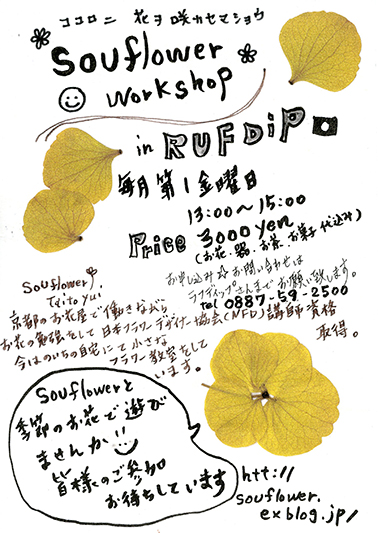 ココロニ 花ヲ咲カセマショウ
Souflower
Workshop
in RUFDiP
毎月第1金曜日
13:00～15:00
Price 3000yen
(お花・器・お茶・お菓子代込み)
お申し込み☆お問い合わせは
ラフディップさんまでお願い致します。
tel 0887-59-2500
Souflower
Yui
京都のお花屋で働きながら
お花の勉強をして日本フラワーデザイナー協会(NFD)講師資格
取得。
今はのいちの自宅にて小さな
フラワー教室をして
います。
Souflowerと
季節のお花で遊び
ませんか
皆様のご参加
お待ちしています
htt://
souflower.
exblog.jp/